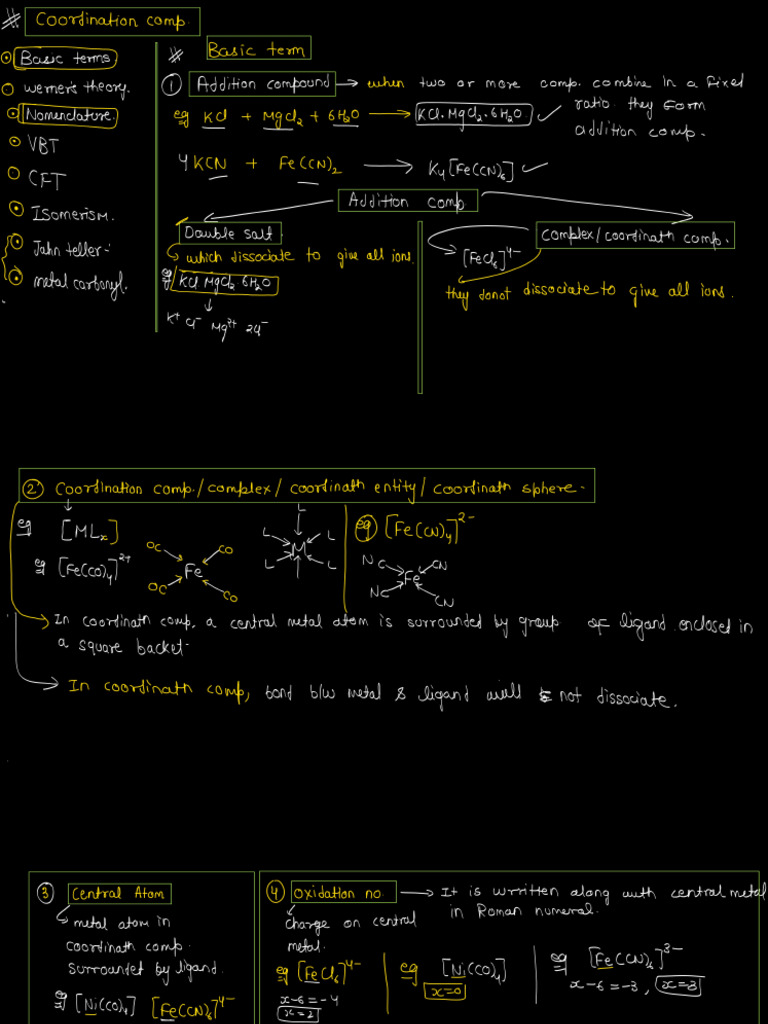 Coordination comp.
Basic terms
werner's theory.
Nomenclature.
VBT
CFT
Isomerism.
Jahn teller-
metal carbonyl.
Basic term
① Addition compound → when two or more comp. combine in a fixed
ratio they form
addition comp.
eg KCl + MgCl₂ + 6H₂O → KCl.MgCl₂.6H₂O
4KCN + Fe(CN)₂ → K₄[Fe(CN)₆]
Addition comp
Double salt
which dissociate to give all ions.
eg KCl MgCl₂ 6H₂O
↓
K⁺ Cl⁻ Mg²⁺ 2Cl⁻
Complex/coordinatn comp.
→ [FeCl₆]⁴⁻
they donot dissociate to give all ions.
② Coordination comp./complex/coordinatn entity/coordinatn sphere.
eg [MLₓ]
eg [Fe(CO)₄]²⁺
OC CO
Fe
OC CO
L
L L
M
L L
eg [Fe(CN)₄]²⁻
NC CN
Fe
NC CN
→ In coordinatn comp. a central metal atom is surrounded by group of ligand enclosed in
a square backet.
→ In coordinatn comp, bond b/w metal & ligand will not dissociate.
③ Central Atom
→ metal atom in
coordinatn comp.
surrounded by ligand.
eg [Ni(CO)₄] [Fe(CN)₆]⁴⁻
④ Oxidation no. → It is wrritten along with central metal
in Roman numeral.
charge on central
metal.
eg [FeCl₆]⁴⁻
x-6=-4
x=2
eg [Ni(CO)₄]
x=0
eg [Fe(CN)₆]³⁻
x-6=-3, x=3